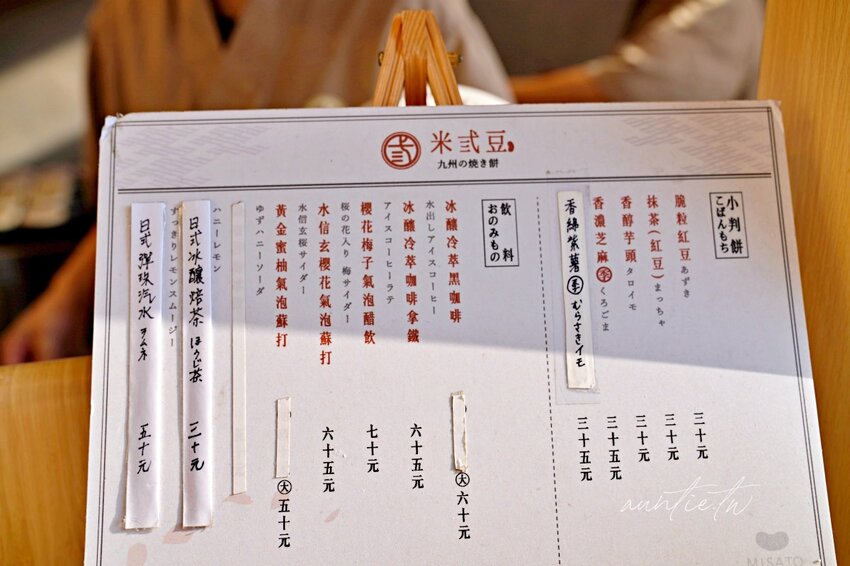 米弎豆
九州の焼き餅
小判餅
こばんもち
脆粒紅豆 あずき 三十元
抹茶(紅豆) まっちゃ 三十元
香醇芋頭 タロイモ 三十元
香濃芝麻季 くろごま 三十五元
香綿紫薯季 むらさきイモ 三十五元
飲料
おのみもの
冰釀冷萃黑咖啡 大 六十元
水出しアイスコーヒー
冰釀冷萃咖啡拿鐵 六十五元
アイスコーヒーラテ
櫻花梅子氣泡醋飲 七十元
桜の花入り 梅サイダー
水信玄櫻花氣泡蘇打 六十五元
水信玄桜サイダー
黃金蜜柚氣泡蘇打 大 五十元
ゆずハニーソーダ
ハニーレモン
日式冰釀焙茶 ほうじ茶 三十元
すっきりレモンスムージー
日式彈珠汽水 ラムネ 五十元
auntie.tw
MISATO